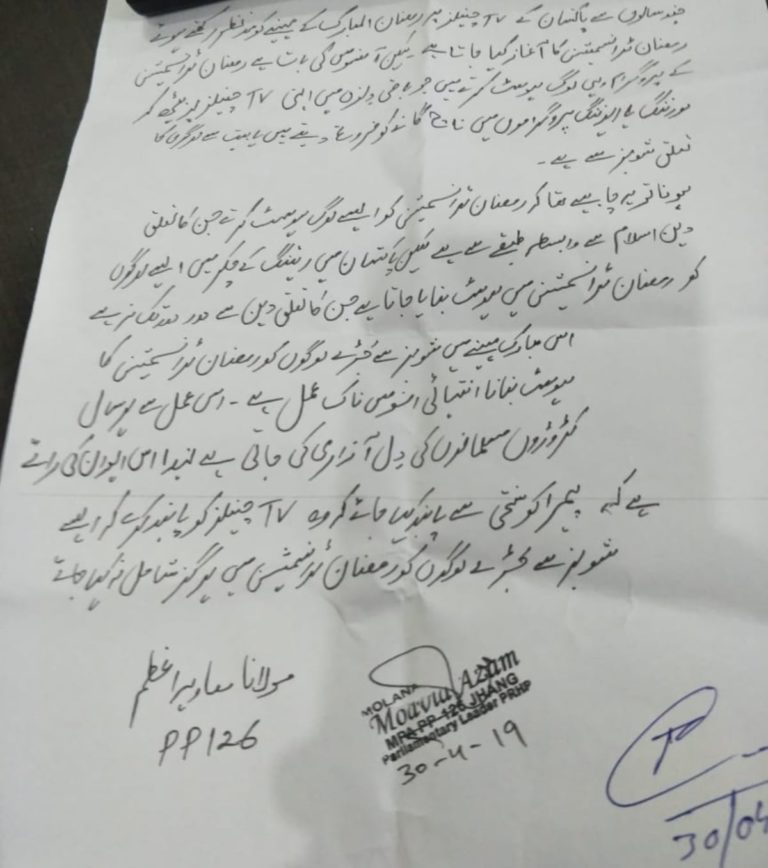 چند سالوں سے پاکستان کے TV چینلز پر رمضان المبارک کے مہینے کو مدنظر رکھتے ہوئے
رمضان ٹرانسمیشن کا آغاز کیا جاتا ہے لیکن افسوس کی بات ہے رمضان ٹرانسمیشن
کے پروگرام وہی لوگ ہوسٹ کرتے ہیں جو باقی دنوں میں انہی TV چینلز پر بیٹھ کر
مورننگ یا ایوننگ پروگراموں میں ناچ گانے کو فروغ دیتے ہیں یا بہت سے لوگوں کا
تعلق شوبز سے ہے ۔
ہونا تو یہ چاہیے تھا کہ رمضان ٹرانسمیشن کو ایسے لوگ ہوسٹ کرتے جن کا تعلق
دین اسلام سے وابستہ طبقے سے ہے لیکن پاکستان میں ریٹنگ کے چکر میں ایسے لوگوں
کو رمضان ٹرانسمیشن میں ہوسٹ بنایا جاتا ہے جن کا تعلق دین سے دور دور تک نہ ہے
اس مبارک مہینے میں شوبز سے جڑے لوگوں کو رمضان ٹرانسمیشن کا
ہوسٹ بنانا انتہائی افسوس ناک عمل ہے ۔ اس عمل سے ہر سال
کڑوڑوں مسلمانوں کی دل آزاری کی جاتی ہے لہذا اس ایوان کی رائے
ہے کہ پیمرا کو سختی سے پابند کیا جائے کہ وہ TV چینلز کو پابند کرے کہ ایسے
شوبز سے جڑے لوگوں کو رمضان ٹرانسمیشن میں ہرگز شامل نہ کیا جائے
مولانا معاویہ اعظم
PP126
MOLANA
Moavia Azam
MPA PP-126 JHANG
Parliamentary Leader PRHP
30-4-19
30/04